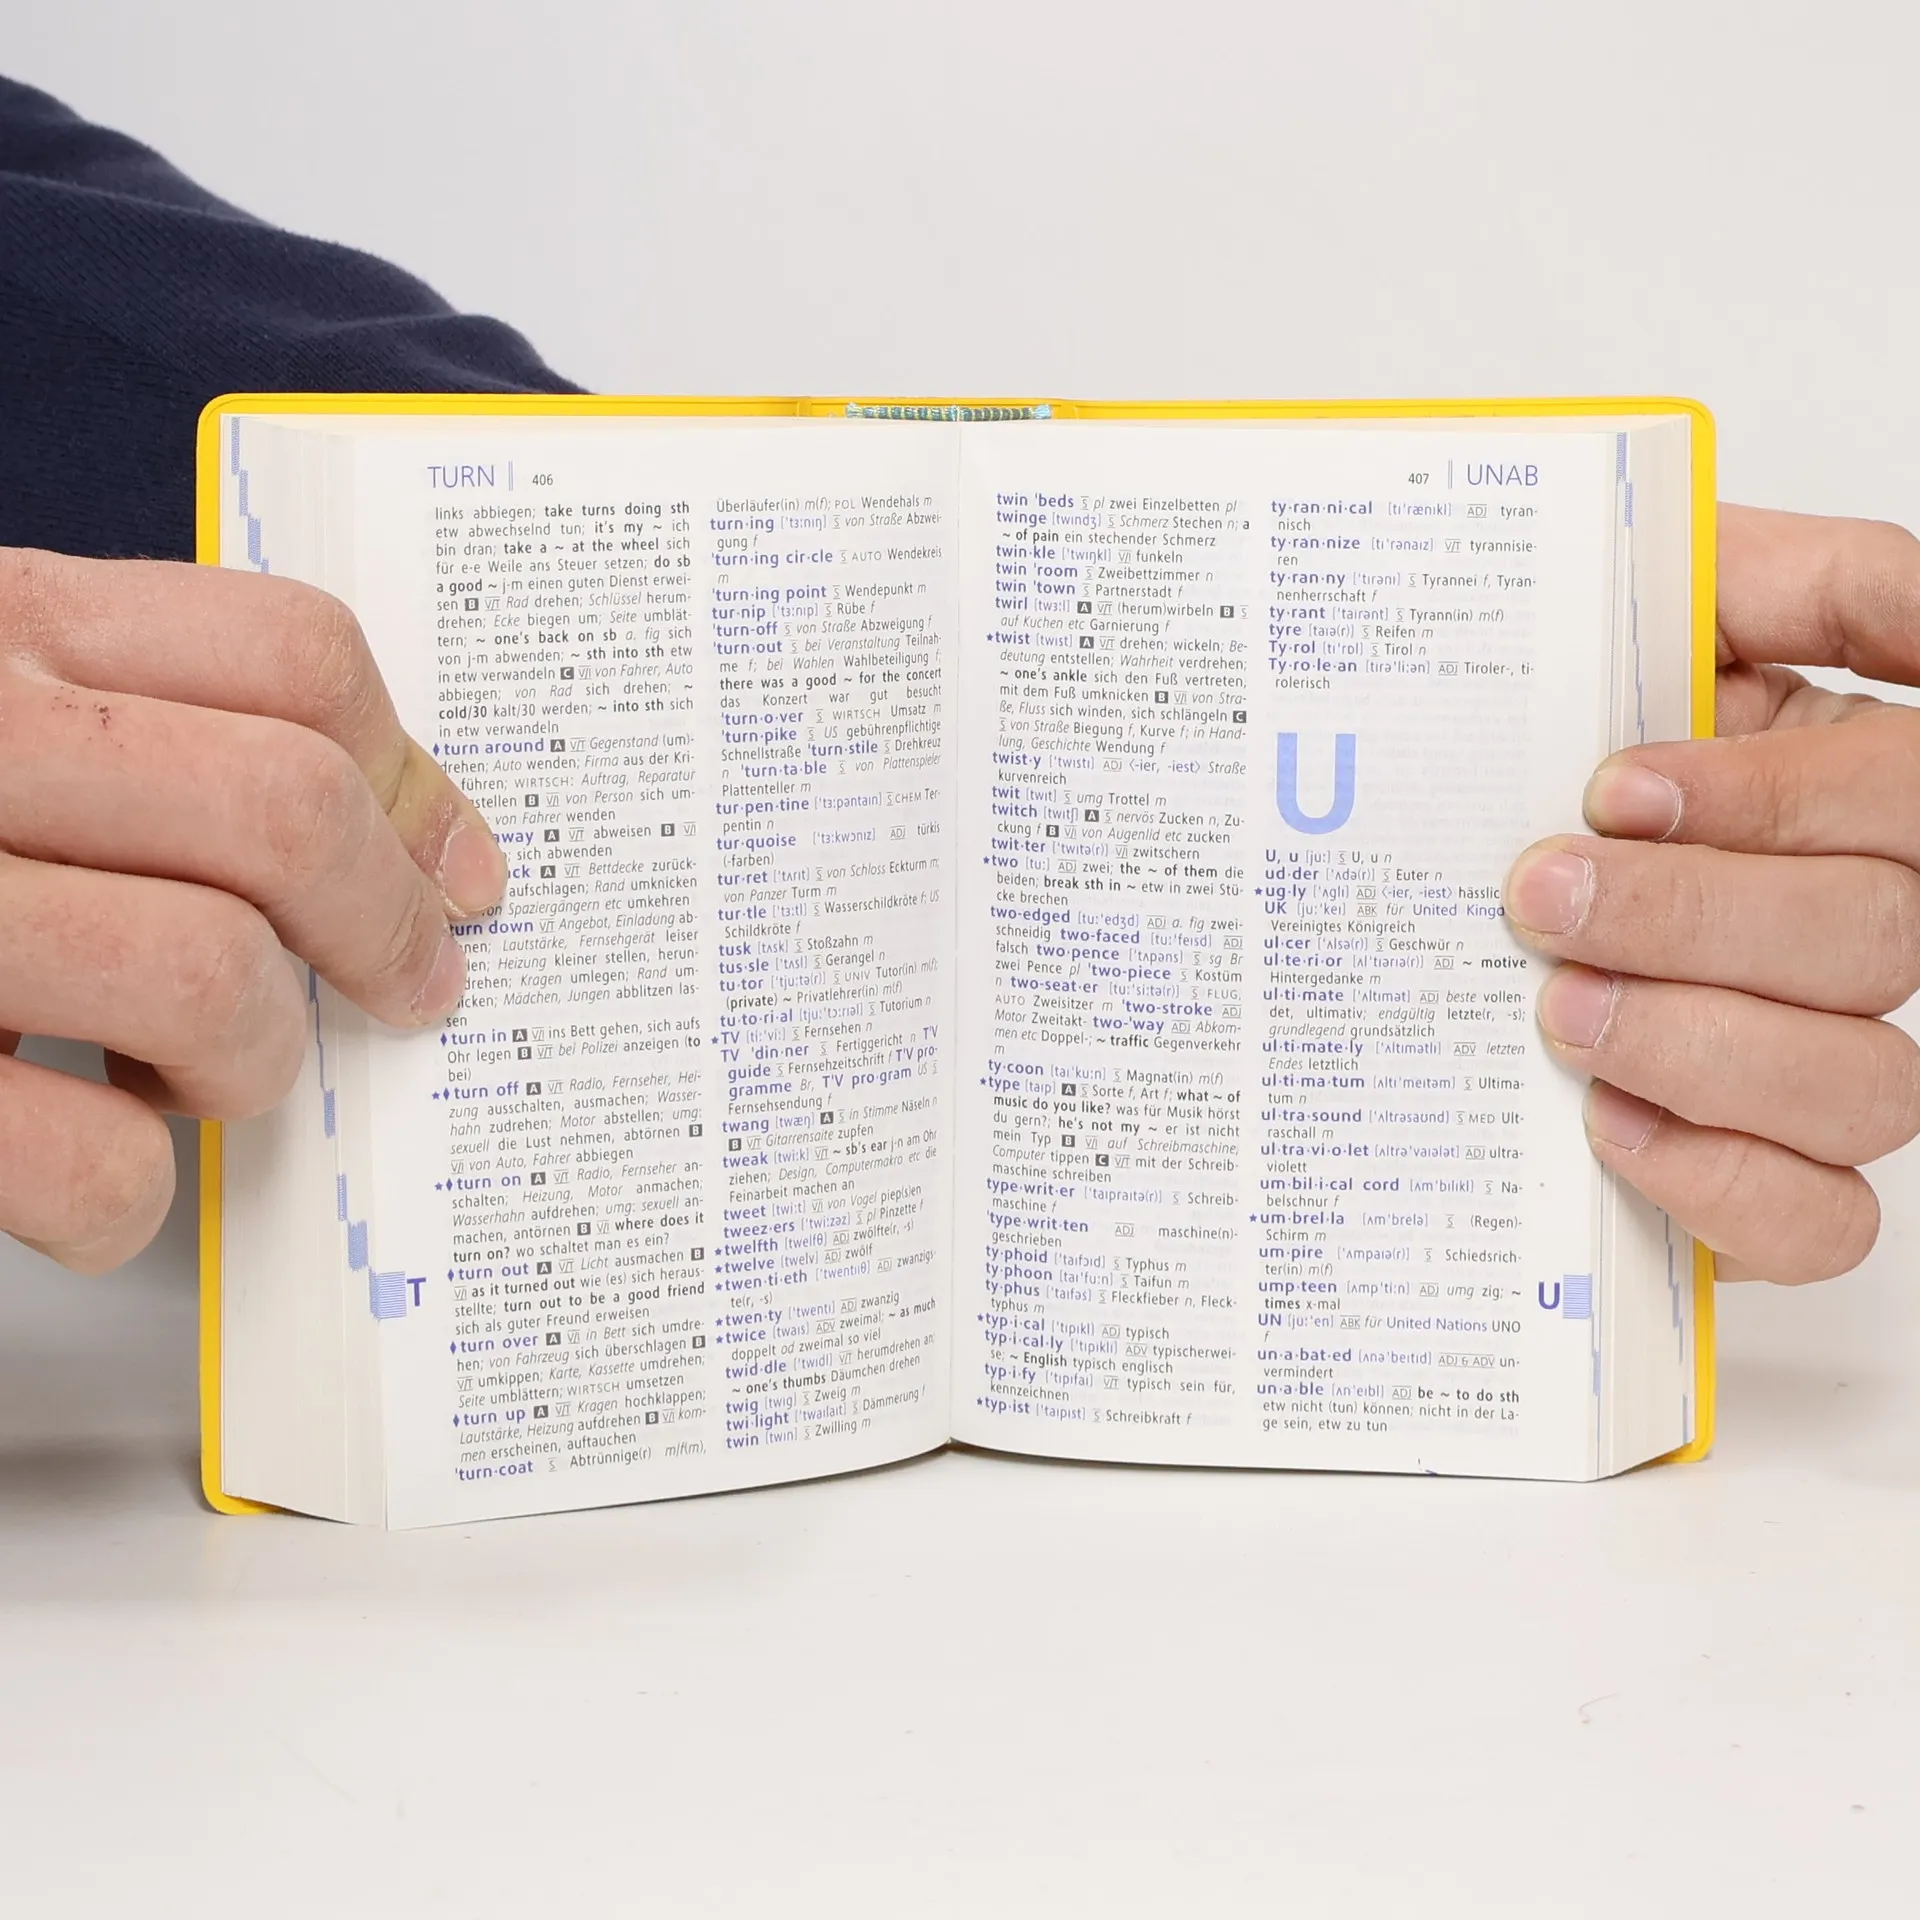 TURN 406
links abbiegen; take turns doing sth
etw abwechselnd tun; it's my ~ ich
bin dran; take a ~ at the wheel sich
für e-e Weile ans Steuer setzen; do sb
a good ~ j-m einen guten Dienst erwei-
sen B V/T Rad drehen; Schlüssel herum-
drehen; Ecke biegen um; Seite umblät-
tern; ~ one's back on sb a. fig sich
von j-m abwenden; ~ sth into sth etw
in etw verwandeln C V/I von Fahrer, Auto
abbiegen; von Rad sich drehen; ~
cold/30 kalt/30 werden; ~ into sth sich
in etw verwandeln
♦turn around A V/T Gegenstand (um)-
drehen; Auto wenden; Firma aus der Kri-
führen; WIRTSCH: Auftrag, Reparatur
stellen B V/I von Person sich um-
von Fahrer wenden
away A V/T abweisen B V/I
sich abwenden
A V/T Bettdecke zurück-
aufschlagen; Rand umknicken
von Spaziergängern etc umkehren
turn down V/T Angebot, Einladung ab-
Lautstärke, Fernsehgerät leiser
Heizung kleiner stellen, herun-
drehen; Kragen umlegen; Rand um-
Mädchen, Jungen abblitzen las-
sen
♦turn in A V/I ins Bett gehen, sich aufs
Ohr legen B V/T bei Polizei anzeigen (to
bei)
★♦turn off A V/T Radio, Fernseher, Hei-
zung ausschalten, ausmachen; Wasser-
hahn zudrehen; Motor abstellen; umg:
sexuell die Lust nehmen, abtörnen B
V/I von Auto, Fahrer abbiegen
★♦turn on A V/T Radio, Fernseher an-
schalten; Heizung, Motor anmachen;
Wasserhahn aufdrehen; umg: sexuell an-
machen, antörnen B V/I where does it
turn on? wo schaltet man es ein?
♦turn out A V/T Licht ausmachen B
V/I as it turned out wie (es) sich heraus-
stellte; turn out to be a good friend
sich als guter Freund erweisen
♦turn over A V/I in Bett sich umdre-
hen; von Fahrzeug sich überschlagen B
V/T umkippen; Karte, Kassette umdrehen;
Seite umblättern; WIRTSCH umsetzen
♦turn up A V/T Kragen hochklappen;
Lautstärke, Heizung aufdrehen B V/I kom-
men erscheinen, auftauchen
'turn·coat S Abtrünnige(r) m/f(m),
T
Überläufer(in) m(f); POL Wendehals m
turn·ing ['tɜːnɪŋ] S von Straße Abzwei-
gung f
'turn·ing cir·cle S AUTO Wendekreis
m
'turn·ing point S Wendepunkt m
tur·nip ['tɜːnɪp] S Rübe f
'turn-off S von Straße Abzweigung f
'turn·out S bei Veranstaltung Teilnah-
me f; bei Wahlen Wahlbeteiligung f;
there was a good ~ for the concert
das Konzert war gut besucht
'turn·o·ver S WIRTSCH Umsatz m
'turn·pike S US gebührenpflichtige
Schnellstraße 'turn·stile S Drehkreuz
n 'turn·ta·ble S von Plattenspieler
Plattenteller m
tur·pen·tine ['tɜːpəntaɪn] S CHEM Ter-
pentin n
tur·quoise ['tɜːkwɔɪz] ADJ türkis
(-farben)
tur·ret ['tʌrɪt] S von Schloss Eckturm m;
von Panzer Turm m
tur·tle ['tɜːtl] S Wasserschildkröte f; US
Schildkröte f
tusk [tʌsk] S Stoßzahn m
tus·sle ['tʌsl] S Gerangel n
tu·tor ['tjuːtə(r)] S UNIV Tutor(in) m(f);
(private) ~ Privatlehrer(in) m(f)
tu·to·ri·al [tjuː'tɔːrɪəl] S Tutorium n
★TV [tiː'viː] S Fernsehen n
TV 'din·ner S Fertiggericht n T'V
guide S Fernsehzeitschrift f T'V pro-
gramme Br, T'V pro·gram US S
Fernsehsendung f
twang [twæŋ] A S in Stimme Näseln n
B V/T Gitarrensaite zupfen
tweak [twiːk] V/T ~ sb's ear j-n am Ohr
ziehen; Design, Computermakro etc die
Feinarbeit machen an
tweet [twiːt] V/I von Vogel piep(s)en
tweez·ers ['twiːzəz] S pl Pinzette f
★twelfth [twelfθ] ADJ zwölfte(r, -s)
★twelve [twelv] ADJ zwölf
★twen·ti·eth ['twentɪɪθ] ADJ zwanzigs-
te(r, -s)
★twen·ty ['twentɪ] ADJ zwanzig
★twice [twaɪs] ADV zweimal; ~ as much
doppelt od zweimal so viel
twid·dle ['twɪdl] V/T herumdrehen an;
~ one's thumbs Däumchen drehen
twig [twɪg] S Zweig m
twi·light ['twaɪlaɪt] S Dämmerung f
twin [twɪn] S Zwilling m
407 UNAB
twin 'beds S pl zwei Einzelbetten pl
twinge [twɪndʒ] S Schmerz Stechen n; a
~ of pain ein stechender Schmerz
twin·kle ['twɪŋkl] V/I funkeln
twin 'room S Zweibettzimmer n
twin 'town S Partnerstadt f
twirl [twɜːl] A V/T (herum)wirbeln B S
auf Kuchen etc Garnierung f
★twist [twɪst] A V/T drehen; wickeln; Be-
deutung entstellen; Wahrheit verdrehen;
~ one's ankle sich den Fuß vertreten,
mit dem Fuß umknicken B V/I von Stra-
ße, Fluss sich winden, sich schlängeln C
S von Straße Biegung f, Kurve f; in Hand-
lung, Geschichte Wendung f
twist·y ['twɪstɪ] ADJ ⟨-ier, -iest⟩ Straße
kurvenreich
twit [twɪt] S umg Trottel m
twitch [twɪtʃ] A S nervös Zucken n, Zu-
ckung f B V/I von Augenlid etc zucken
twit·ter ['twɪtə(r)] V/I zwitschern
★two [tuː] ADJ zwei; the ~ of them die
beiden; break sth in ~ etw in zwei Stü-
cke brechen
two-edged [tuː'edʒd] ADJ a. fig zwei-
schneidig two-faced [tuː'feɪsd] ADJ
falsch two·pence ['tʌpəns] S sg Br
zwei Pence pl 'two-piece S Kostüm
n two-seat·er [tuː'siːtə(r)] S FLUG,
AUTO Zweisitzer m 'two-stroke ADJ
Motor Zweitakt- two-'way ADJ Abkom-
men etc Doppel-; ~ traffic Gegenverkehr
m
ty·coon [taɪ'kuːn] S Magnat(in) m(f)
★type [taɪp] A S Sorte f, Art f; what ~ of
music do you like? was für Musik hörst
du gern?; he's not my ~ er ist nicht
mein Typ B V/I auf Schreibmaschine,
Computer tippen C V/T mit der Schreib-
maschine schreiben
type·writ·er ['taɪpraɪtə(r)] S Schreib-
maschine f
'type·writ·ten ADJ maschine(n)-
geschrieben
ty·phoid ['taɪfɔɪd] S Typhus m
ty·phoon [taɪ'fuːn] S Taifun m
ty·phus ['taɪfəs] S Fleckfieber n, Fleck-
typhus m
★typ·i·cal ['tɪpɪkl] ADJ typisch
typ·i·cal·ly ['tɪpɪklɪ] ADV typischerwei-
se; ~ English typisch englisch
typ·i·fy ['tɪpɪfaɪ] V/T typisch sein für,
kennzeichnen
★typ·ist ['taɪpɪst] S Schreibkraft f
ty·ran·ni·cal [tɪ'rænɪkl] ADJ tyran-
nisch
ty·ran·nize ['tɪrənaɪz] V/T tyrannisie-
ren
ty·ran·ny ['tɪrənɪ] S Tyrannei f, Tyran-
nenherrschaft f
ty·rant ['taɪrənt] S Tyrann(in) m(f)
tyre [taɪə(r)] S Reifen m
Ty·rol [tɪ'rɒl] S Tirol n
Ty·ro·le·an [tɪrə'liːən] ADJ Tiroler-, ti-
rolerisch
U
U, u [juː] S U, u n
ud·der ['ʌdə(r)] S Euter n
★ug·ly ['ʌglɪ] ADJ ⟨-ier, -iest⟩
UK [juː'keɪ] ABK für United
Vereinigtes Königreich
ul·cer ['ʌlsə(r)] S Geschwür n
ul·te·ri·or [ʌl'tɪərɪə(r)] ADJ ~ motive
Hintergedanke m
ul·ti·mate ['ʌltɪmət] ADJ beste vollen-
det, ultimativ; endgültig letzte(r, -s);
grundlegend grundsätzlich
ul·ti·mate·ly ['ʌltɪmətlɪ] ADV letzten
Endes letztlich
ul·ti·ma·tum [ʌltɪ'meɪtəm] S Ultima-
tum n
ul·tra·sound ['ʌltrəsaʊnd] S MED Ult-
raschall m
ul·tra·vi·o·let [ʌltrə'vaɪələt] ADJ ultra-
violett
um·bil·i·cal cord [ʌm'bɪlɪkl] S Na-
belschnur f
★um·brel·la [ʌm'brelə] S (Regen)-
Schirm m
um·pire ['ʌmpaɪə(r)] S Schiedsrich-
ter(in) m(f)
ump·teen [ʌmp'tiːn] ADJ umg zig; ~
times x-mal
UN [juː'en] ABK für United Nations UNO
f
un·a·bat·ed [ʌnə'beɪtɪd] ADJ & ADV un-
vermindert
un·a·ble [ʌn'eɪbl] ADJ be ~ to do sth
etw nicht (tun) können; nicht in der La-
ge sein, etw zu tun
U